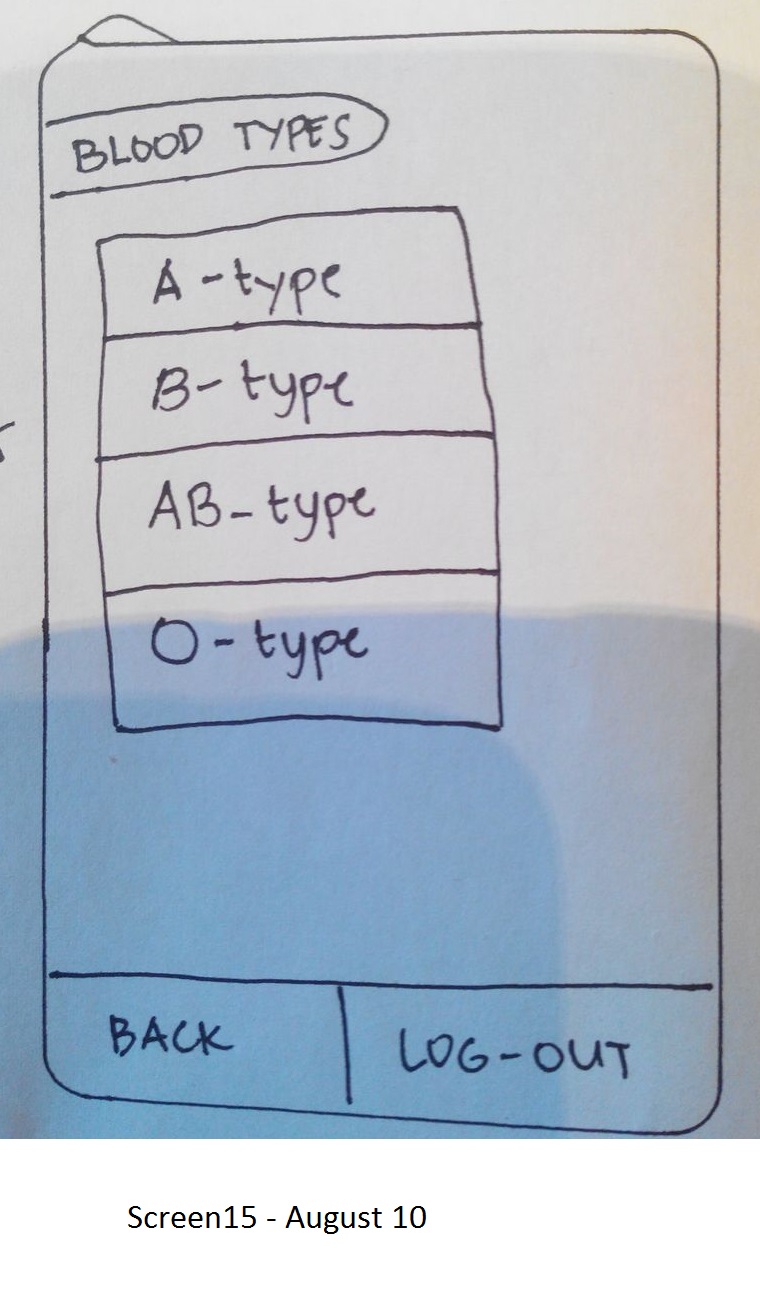 BLOOD TYPES
A-type
B-type
AB-type
O-type
BACK
LOG-OUT
Screen15 - August 10